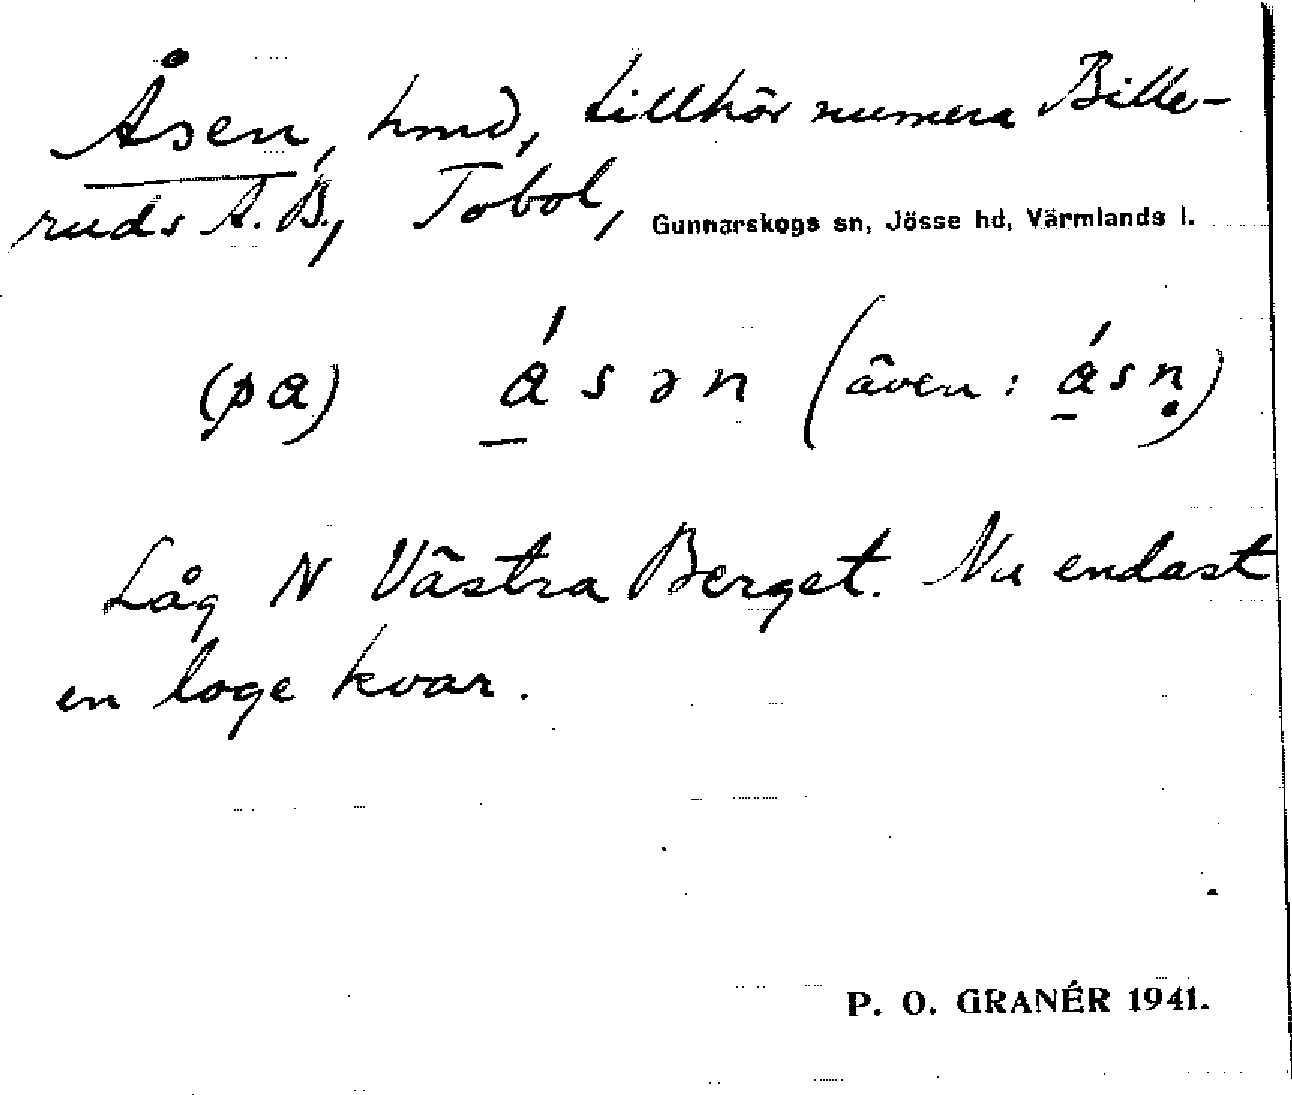 Åsen, hmd, tillhör numera Bille-
ruds A.B., Tobol, Gunnarskogs sn, Jösse hd, Värmlands l.
(pa) ásən (även: ásṇ)
Låg N Västra Berget. Nu endast
en loge kvar.
P. O. GRANÉR 1941.